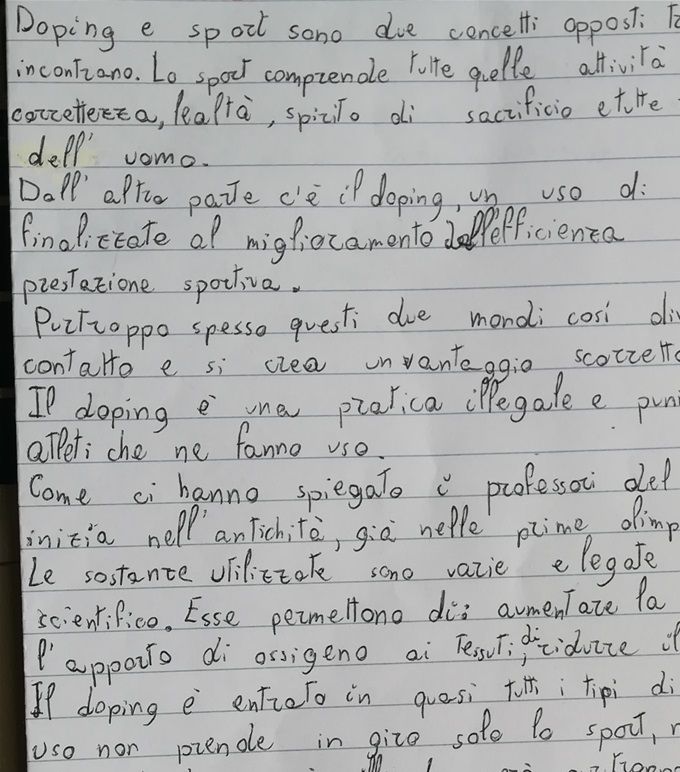 Doping e sport sono due concetti opposti
incontrano. Lo sport comprende tutte quelle attività
correttezza, lealtà, spirito di sacrificio e tutte
dell' uomo.
Dall' altra parte c'è il doping, un uso di
finalizzate al miglioramento dell'efficienza
prestazione sportiva.
Purtroppo spesso questi due mondi così
contatto e si crea un vantaggio
Il doping è una pratica illegale e
atleti che ne fanno uso.
Come ci hanno spiegato i professori del
inizia nell'antichità, già nelle prime
Le sostanze utilizzate sono varie e legate
scientifico. Esse permettono di: aumentare la
l'apporto di ossigeno ai tessuti, di ridurre il
Il doping è entrato in quasi tutti i tipi di
uso non prende in giro solo lo sport,